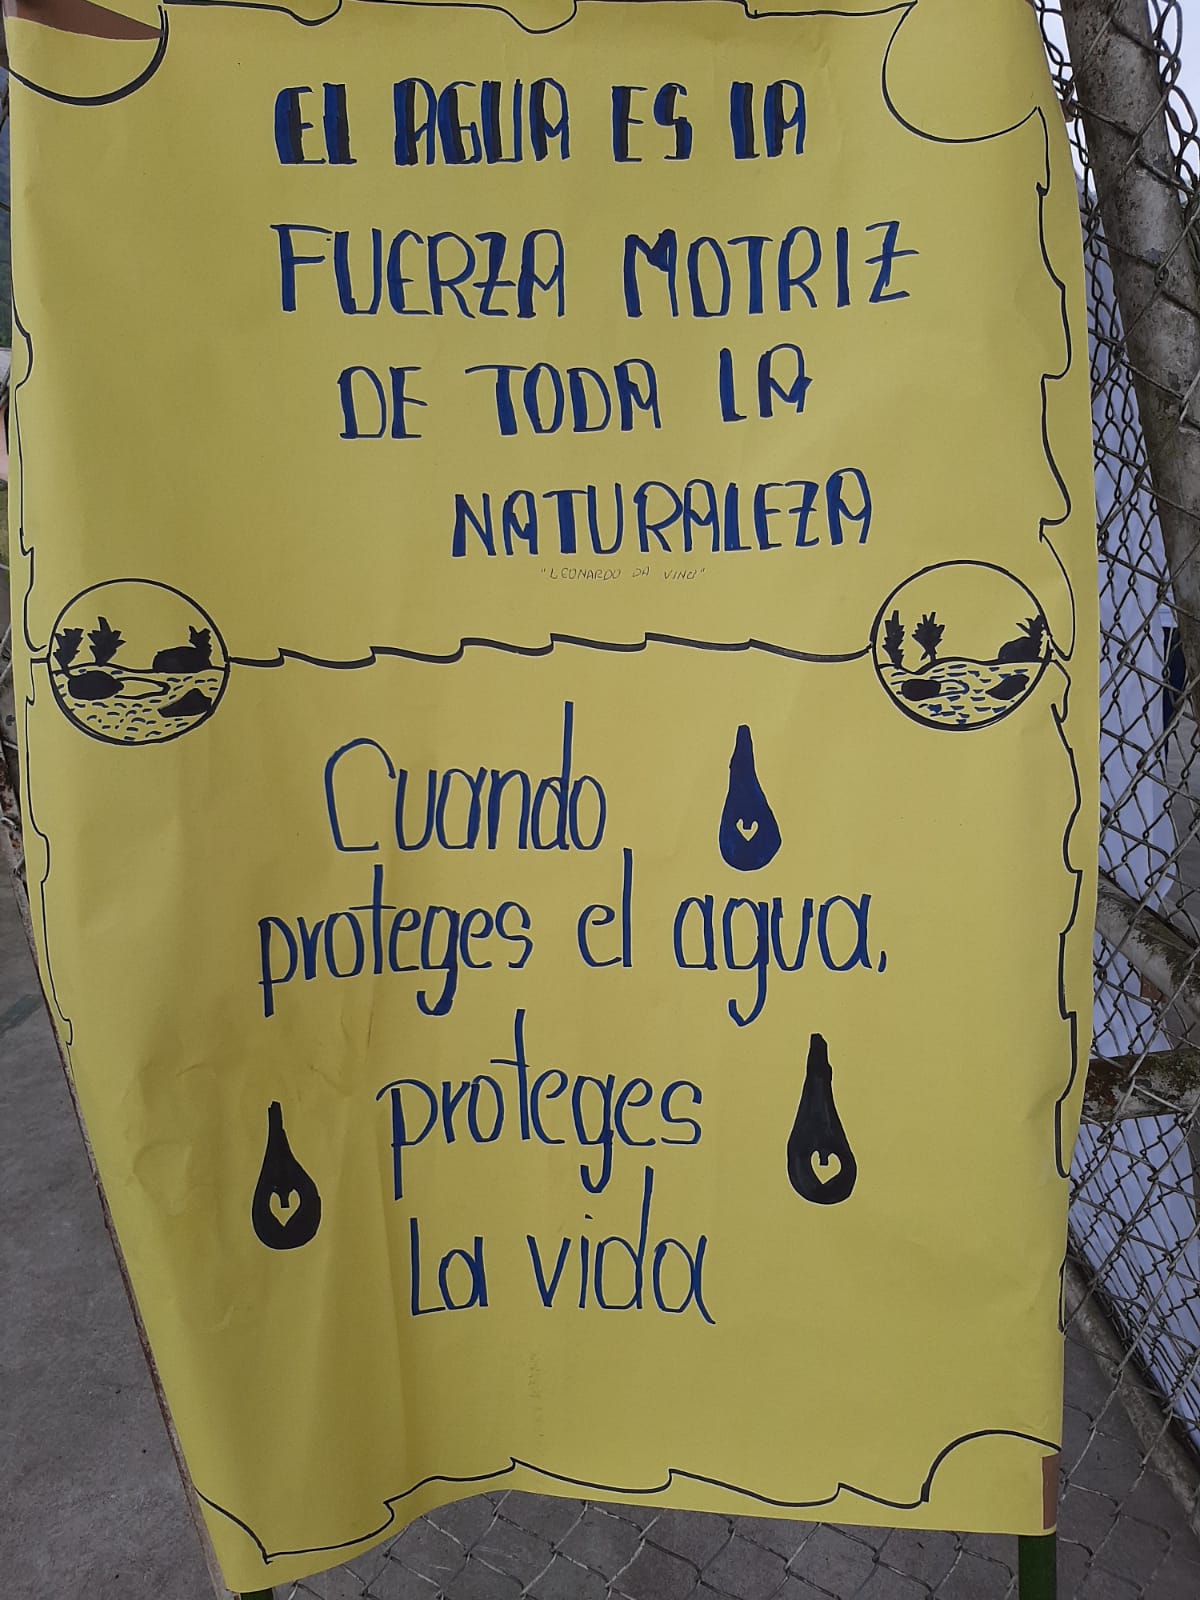 EL AGUA ES LA
FUERZA MOTRIZ
DE TODA LA
NATURALEZA
"LEONARDO DA VINCI"
Cuando
proteges el agua,
proteges
La vida